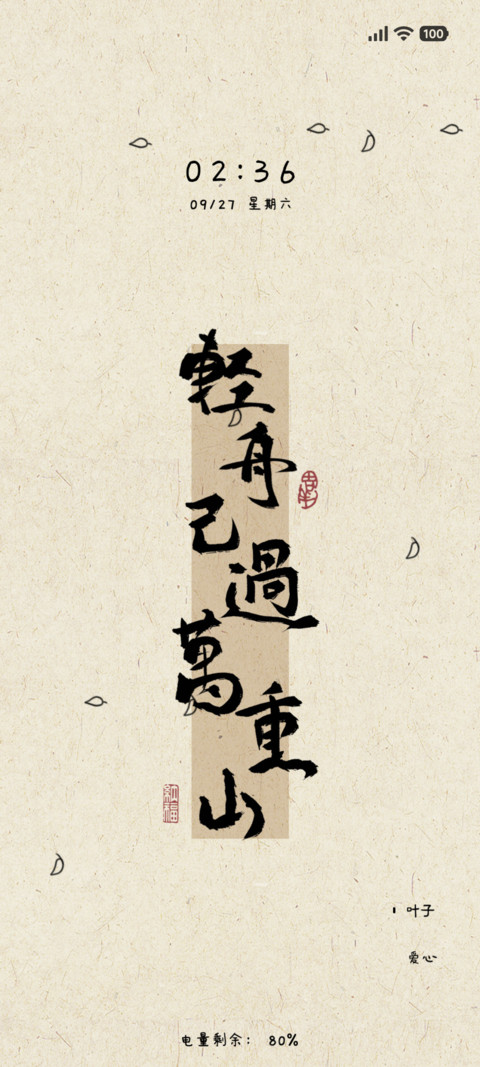 100
02:36
09/27 星期六
輕舟已過萬重山
叶子
爱心
电量剩余： 80%